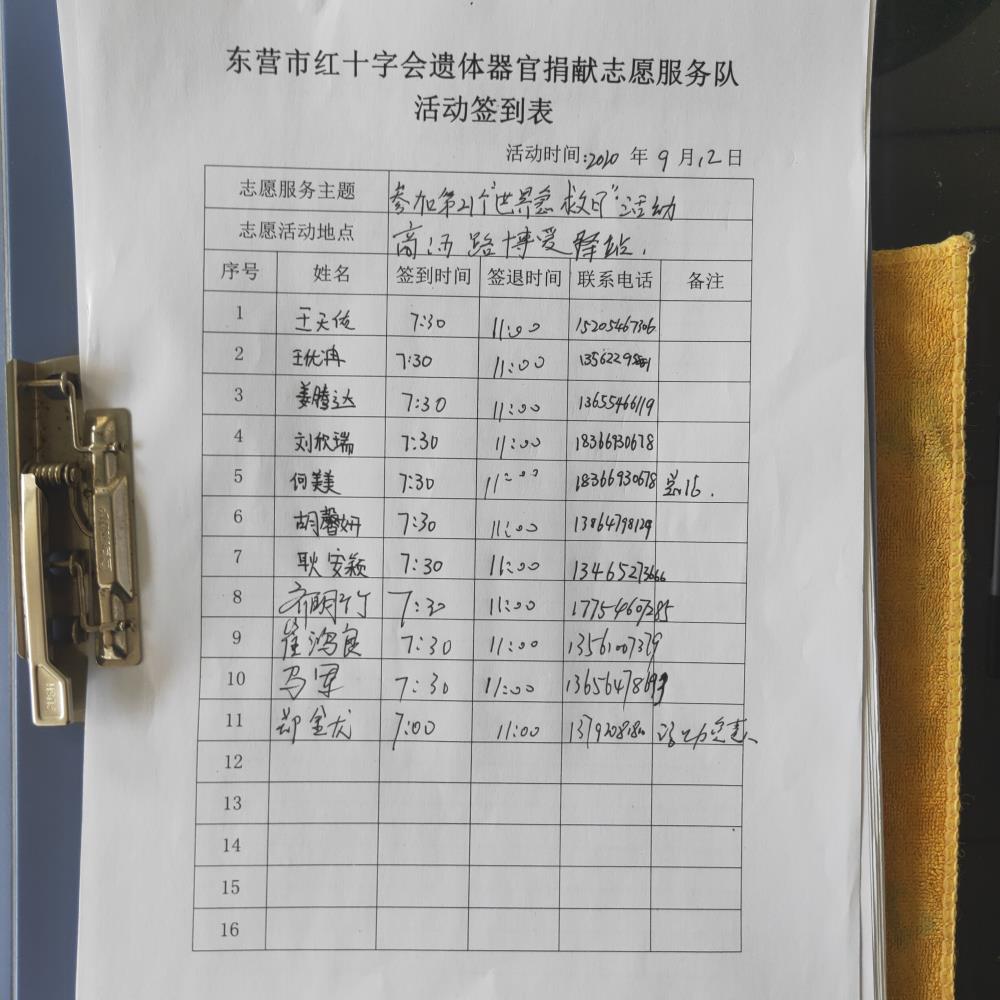 东营市红十字会遗体器官捐献志愿服务队
活动签到表
活动时间:2020 年 9 月 12 日
志愿服务主题 参加第21个"世界急救日"活动
志愿活动地点 高沔路博爱驿站.
序号 姓名 签到时间 签退时间 联系电话 备注
1 王天佐 7:30 11:00 15205467306
2 王优冉 7:30 11:00
3 姜腾达 7:30 11:00 13655466119
4 刘欣瑞 7:30 11:00 18366930678
5 何美美 7:30 11:00 18366930678
6 胡馨妍 7:30 11:00 13864798129
7 耿安颖 7:30 11:00 13465273666
8 齐明竹 7:30 11:00 17754607285
9 崔鸿良 7:30 11:00 13561007379
10 马军 7:30 11:00 13656478693
11 郑金龙 7:00 11:00
12
13
14
15
16
PUSH